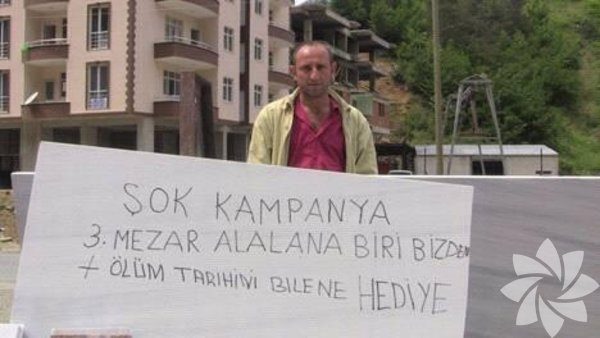 ŞOK KAMPANYA
3. MEZAR ALALANA BİRİ BİZDEN
+ ÖLÜM TARİHİNİ BİLENE HEDİYE